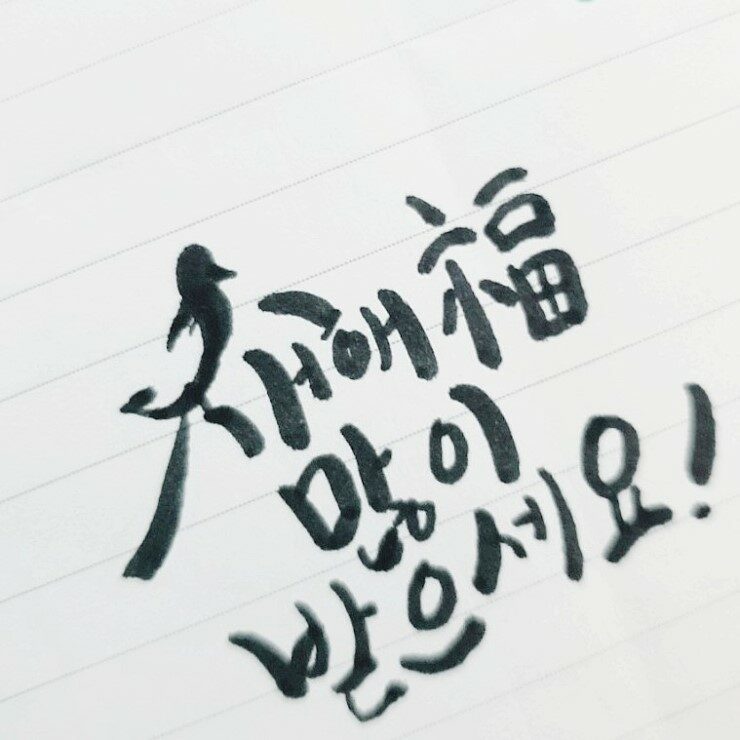 새해福
많이
받으세요!